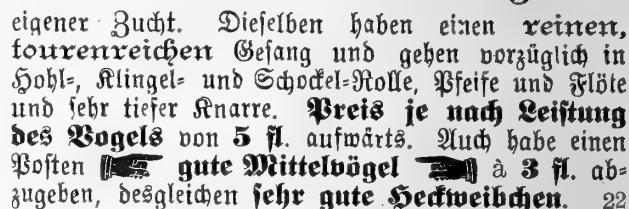 eigener Zucht. Dieselben haben einen reinen,
tourenreichen Gesang und gehen vorzüglich in
Hohl=, Klingel= und Schockel=Rolle, Pfeife und Flöte
und sehr tiefer Knarre. Preis je nach Leistung
des Vogels von 5 fl. aufwärts. Auch habe einen
Posten gute Mittelvögel à 3 fl. ab=
zugeben, desgleichen sehr gute Heckweibchen. 22